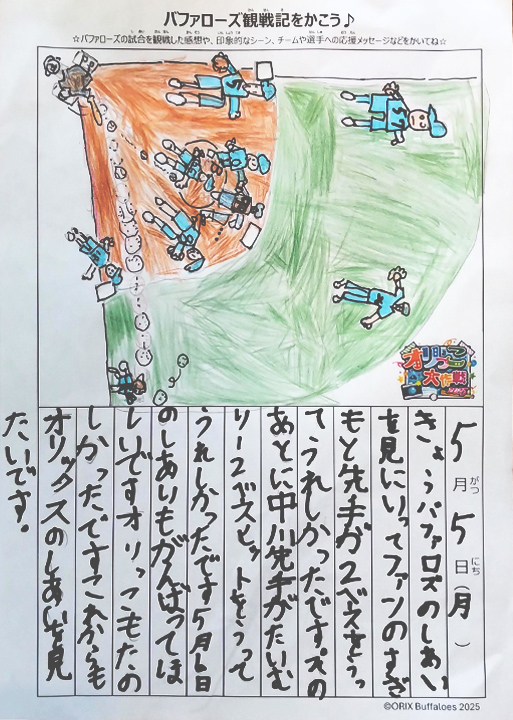 バファローズ観戦記をかこう♪
☆バファローズの試合を観戦した感想や、印象的なシーン、チームや選手への応援メッセージなどをかいてね☆
オリっこ
大作戦
5月5日(月)
きょうバファロズのしあい
を見にいってファンのすぎ
もと先手が2ベースをうっ
てうれしかったです。その
あとに中川先手がたいむ
りー2ベースヒットをうって
うれしかったです5月6日
のしあいもがんばってほ
しいですオリっこもたの
しかったですこれからも
オリックスのしあいを見
たいです。
©ORIX Buffaloes 2025